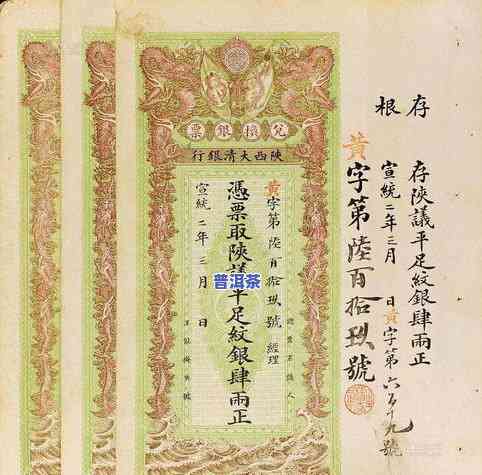 兌換銀票
陝西大清銀行
黃字第陸百拾玖號 經理
憑票取陝議平足紋銀肆兩正
宣統二年三月 日
認票不認人
普洱茶
存根
存陝議平足紋銀肆兩正
宣統二年三月 日黃字第六百十九號
黃字第陸百拾玖號